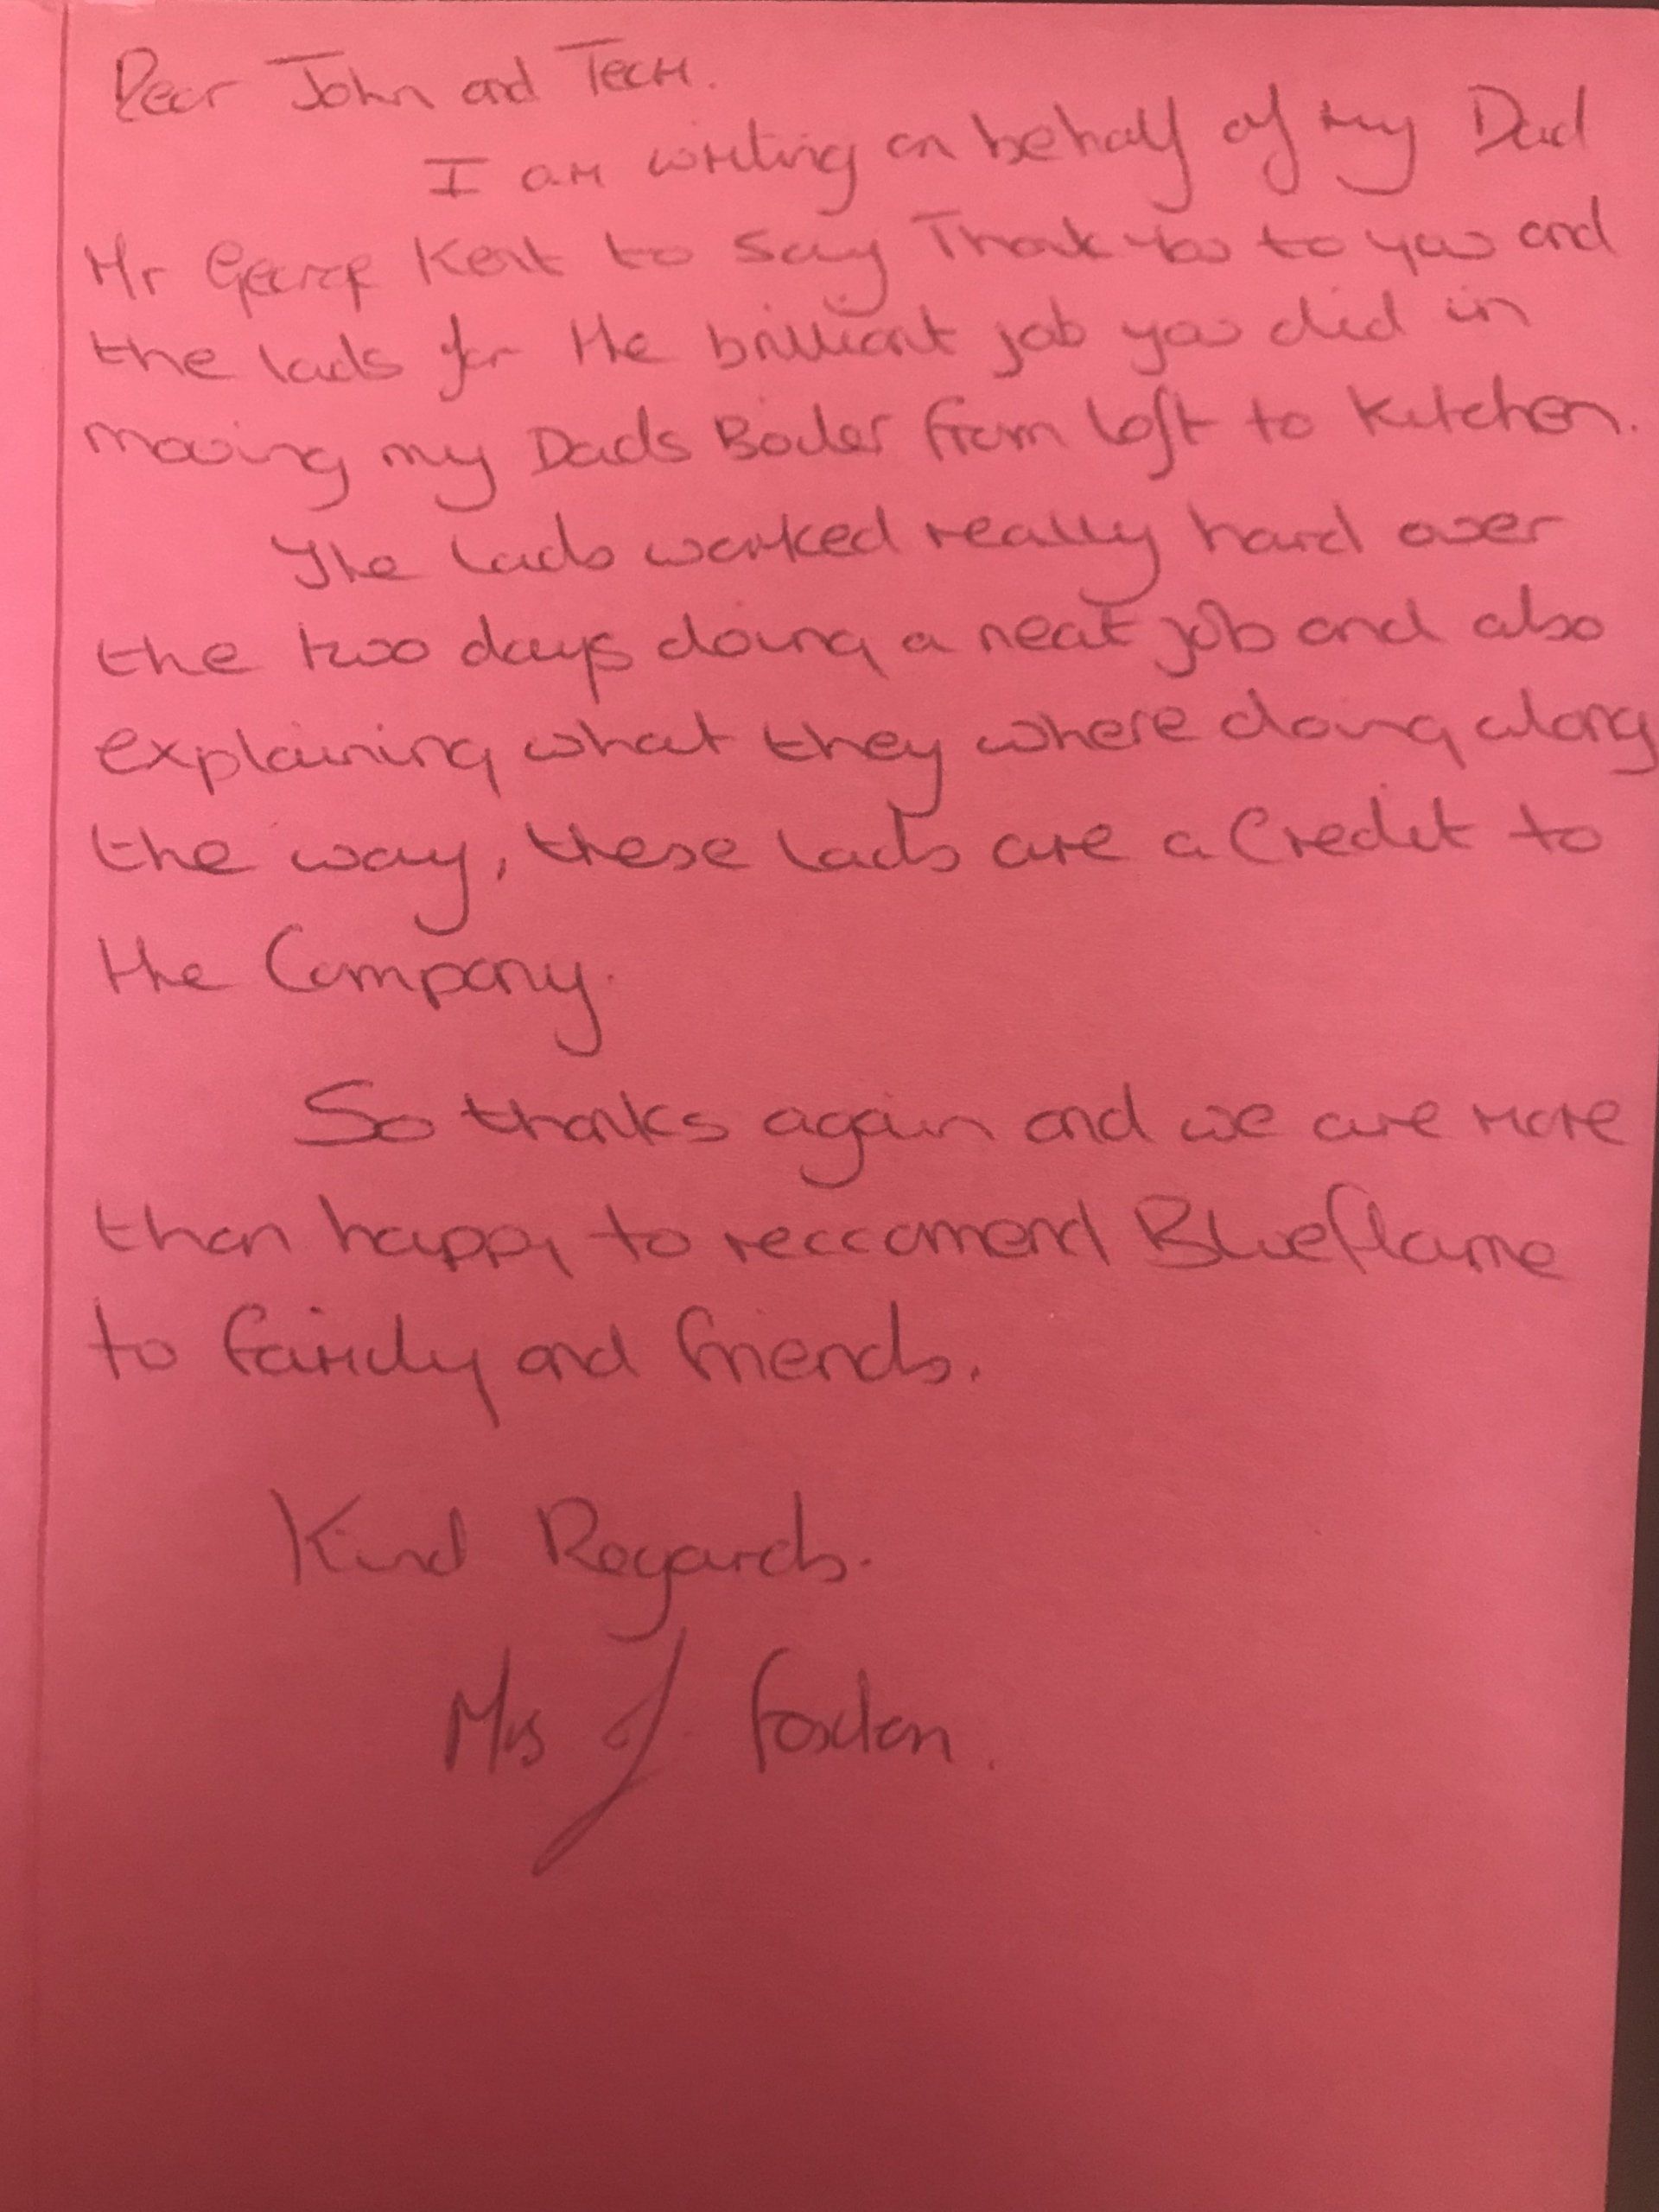 Dear John and Team.
I am writing on behalf of my Dad
Mr George Kent to say Thank You to you and
the lads for the brilliant job you did in
moving my Dads Boiler from loft to kitchen.
The lads worked really hard over
the two days doing a neat job and also
explaining what they where doing along
the way, these lads are a Credit to
the Company.
So thanks again and we are more
than happy to reccomend Blueflame
to family and friends.
Kind Regards.
Mrs J. Foxton.